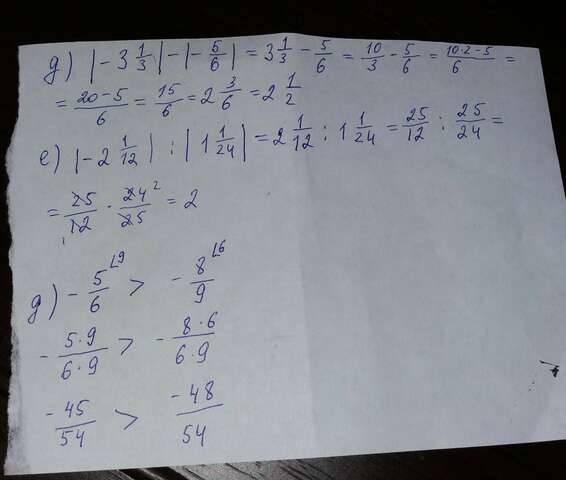 д) |-3 1/3| - |-5/6| = 3 1/3 - 5/6 = 10/3 - 5/6 = (10·2-5)/6 =
= (20-5)/6 = 15/6 = 2 3/6 = 2 1/2
е) |-2 1/12| : |1 1/24| = 2 1/12 : 1 1/24 = 25/12 : 25/24 =
= 25/12 · 24/25 = 2
д) -5/6 > -8/9
-(5·9)/(6·9) > -(8·6)/(6·9)
-45/54 > -48/54